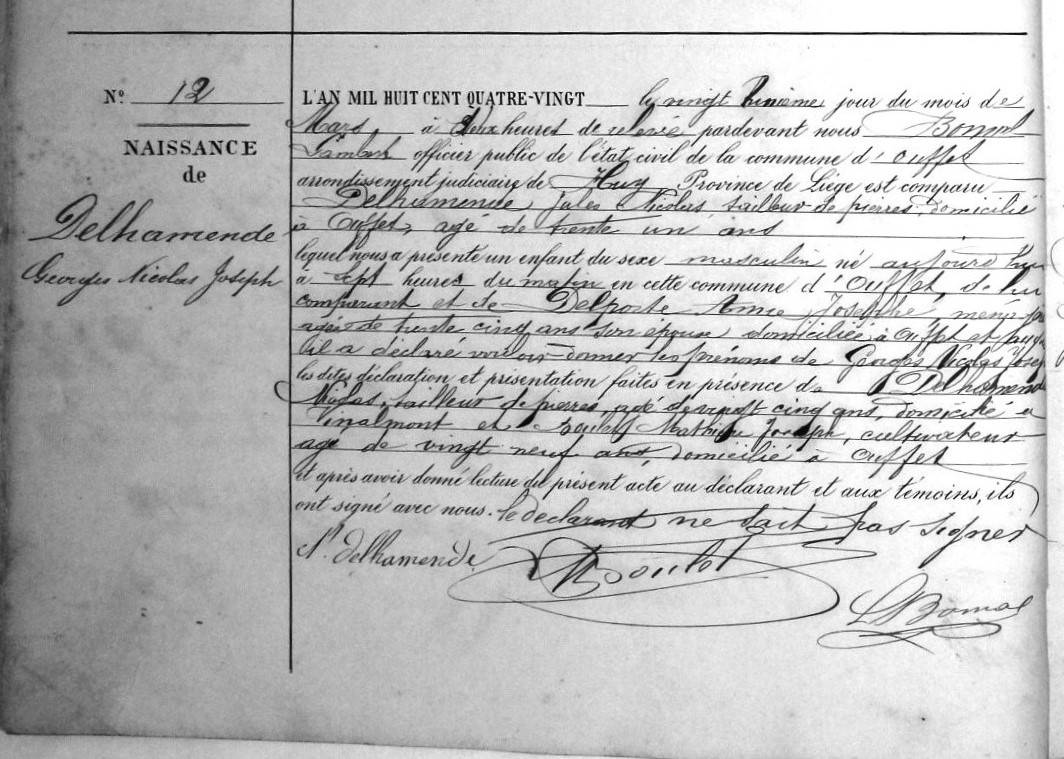 N° 12
NAISSANCE
de
Delhamende
Georges Nicolas Joseph
L'AN MIL HUIT CENT QUATRE-VINGT le vingt huitième jour du mois de
Mars à Deux heures de relevée pardevant nous Bomal
Lambert officier public de l'état civil de la commune d'Ouffet
arrondissement judiciaire de Huy Province de Liège est comparu
Delhamende, Jules Nicolas, tailleur de pierres, domicilié
à Ouffet, agé de trente un ans
lequel nous a présenté un enfant du sexe masculin né aujourd'hui
à sept heures du matin en cette commune d'Ouffet, de lui
comparant et de Delporte Anne Josephe,
agée de trente cinq ans son épouse domiciliée à Ouffet et
il a déclaré vouloir donner les prénoms de Georges Nicolas
les dites déclaration et présentation faites en présence de Delhamende
Nicolas, tailleur de pierres, agé de vingt cinq ans, domicilié à
Vinalmont et Boulot Mathieu Joseph, cultivateur
agé de vingt neuf ans, domicilié à Ouffet
et après avoir donné lecture du présent acte au déclarant et aux témoins, ils
ont signé avec nous. le declarant ne sait pas signer
N. delhamende
Boulot
L Bomal